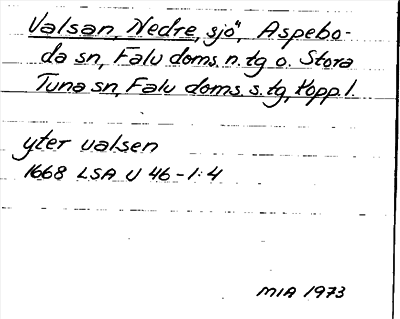 Valsan, Nedre, sjö", Aspebo-
da sn, Falu doms. n. tg o. Stora
Tuna sn, Falu doms. s. tg, Kopp. l.
yter valsen
1668 LSA U 46-1:4
MIA 1973